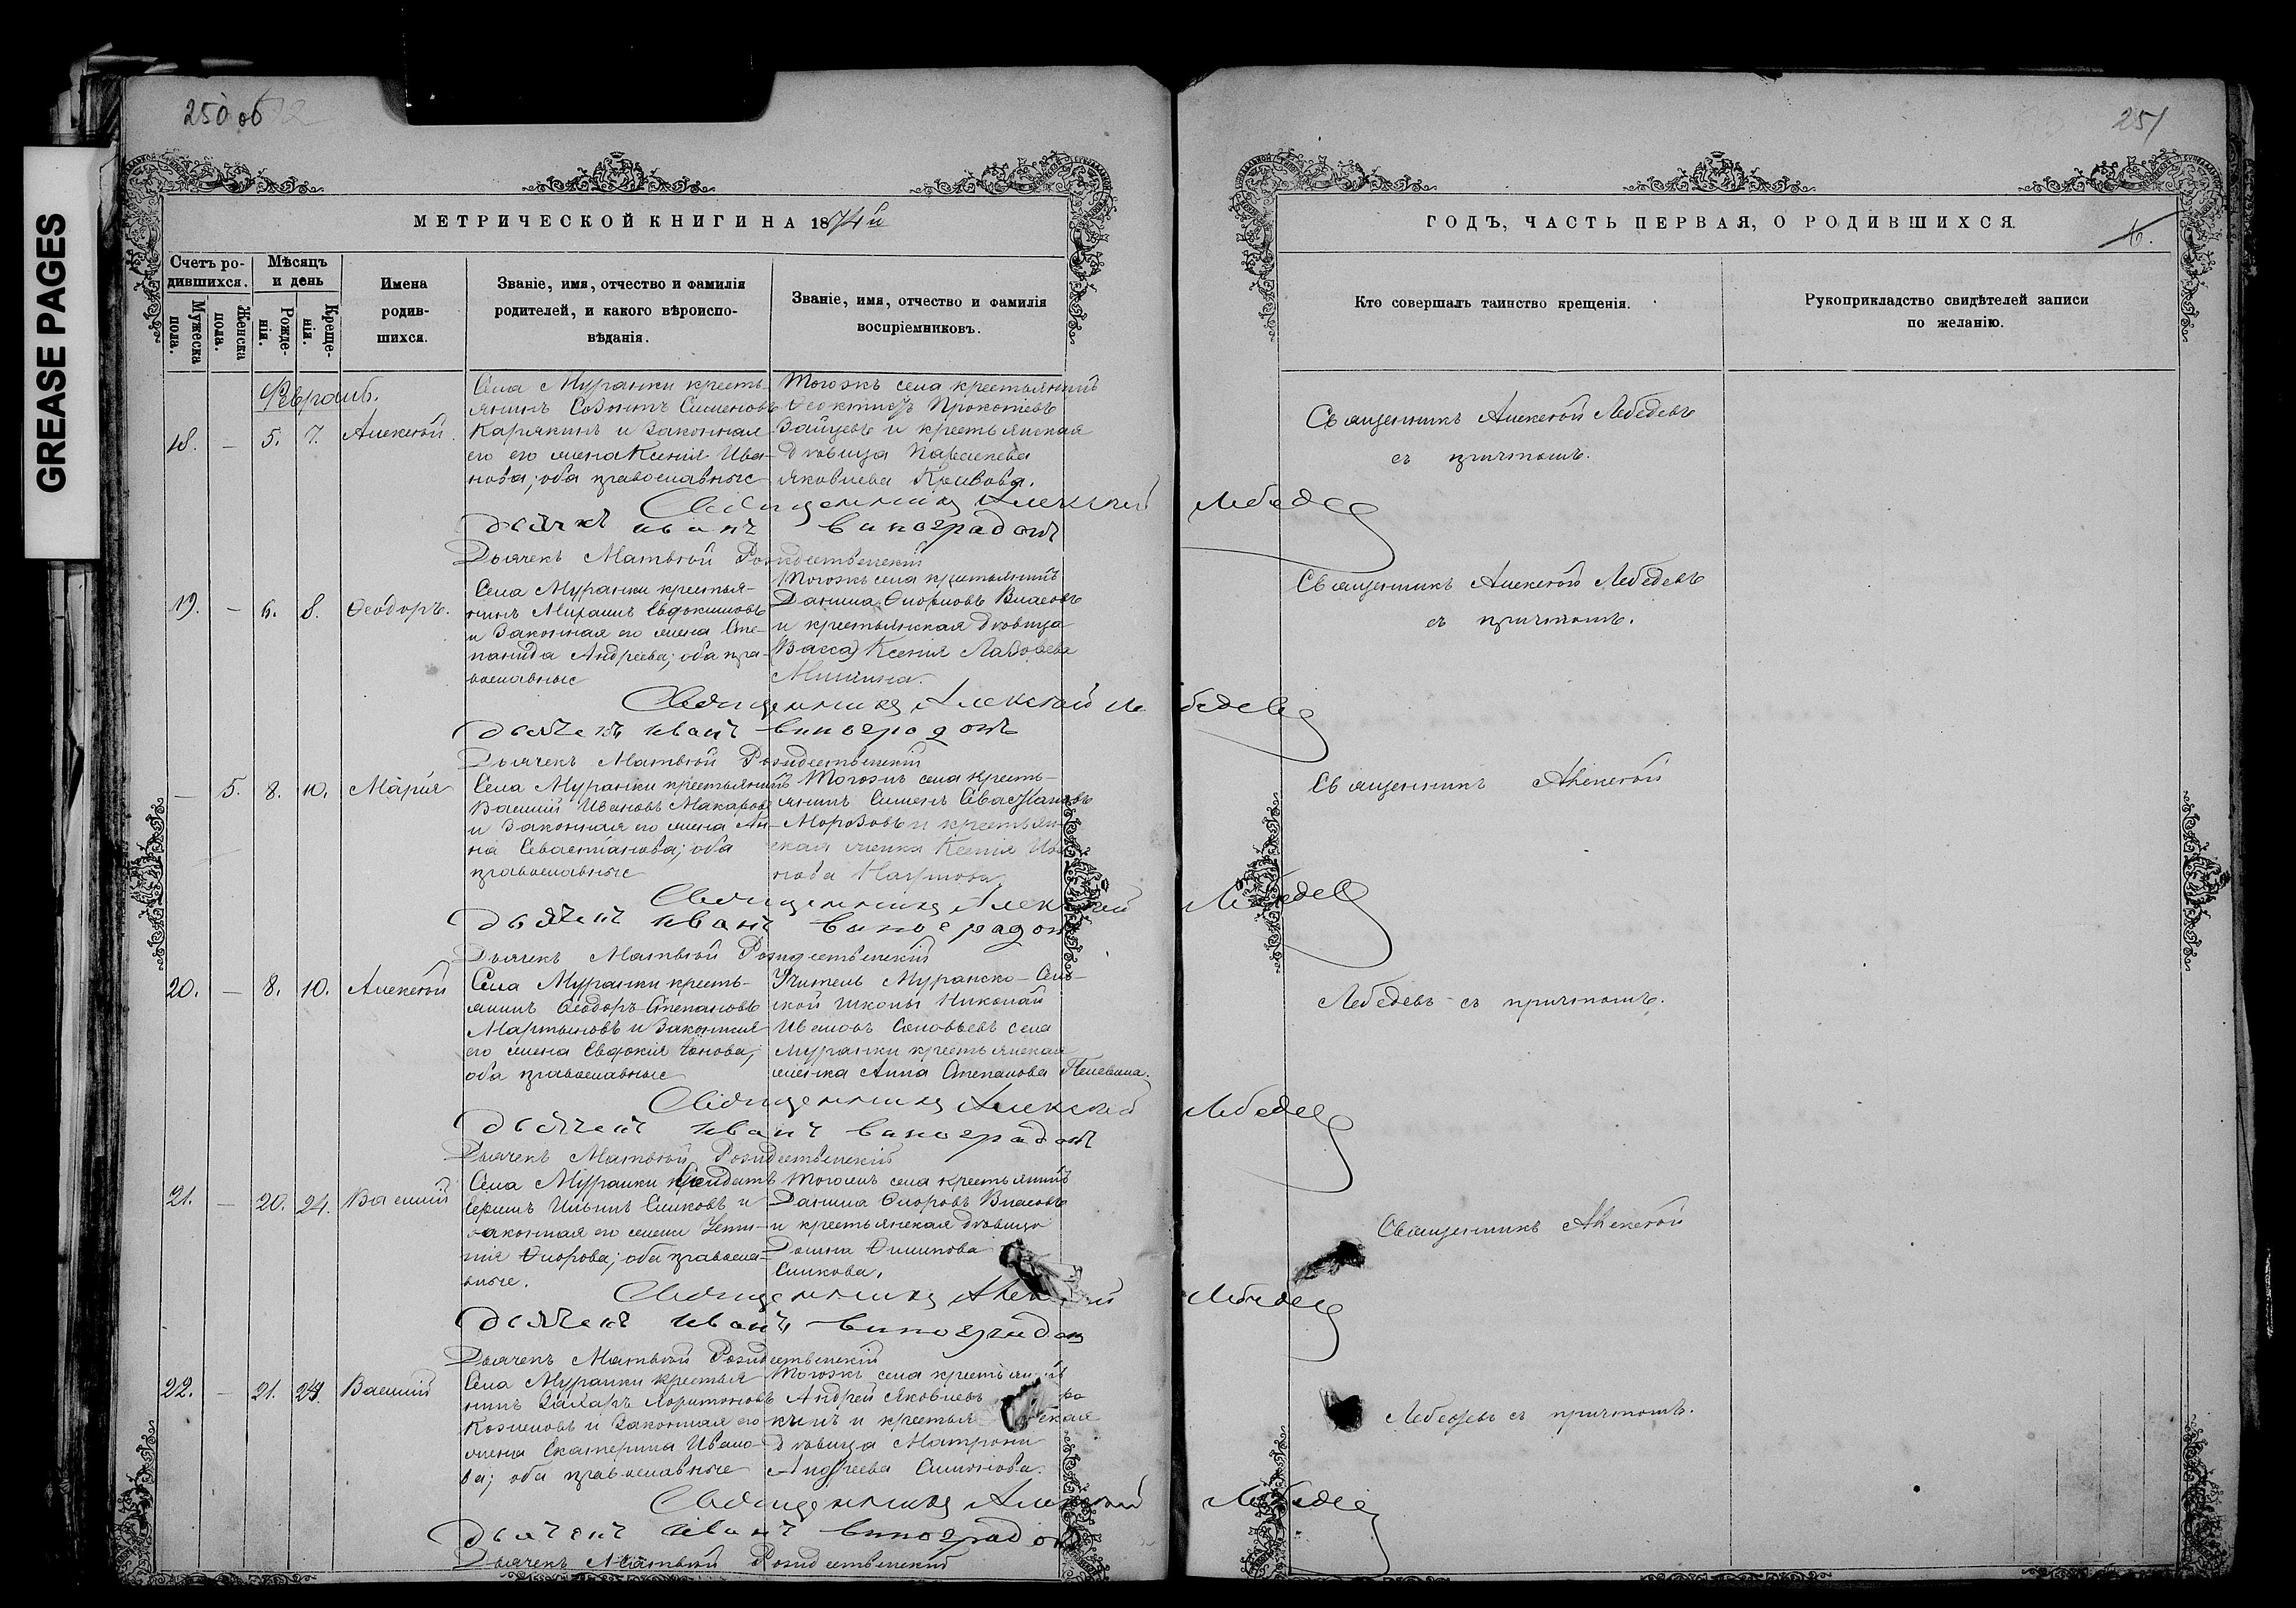 250 об
251
GREASE PAGES
МЕТРИЧЕСКОЙ КНИГИ НА 1874й
ГОДЪ, ЧАСТЬ ПЕРВАЯ, О РОДИВШИХСЯ.
6.
Счетъ ро-
дившихся.
Мужеска
пола.
Женска
пола.
Мѣсяцъ
и день
Рожде-
нія.
Креще-
нія.
Имена
родив-
шихся.
Званіе, имя, отчество и фамилія
родителей, и какого вѣроиспо-
вѣданія.
Званіе, имя, отчество и фамилія
воспріемниковъ.
Кто совершалъ таинство крещенія.
Рукоприкладство свидѣтелей записи
по желанію.
Февраль.
18. — 5. 7. Алексѣй.
Села Муранки кресть-
янинъ Созонтъ Симеоновъ
Карякинъ и законная
его его жена Ксенія Ива-
нова; оба православные
Тогожъ села крестьянинъ
Ѳеоктистъ Прокопіевъ
Зайцевъ и крестьянская
дѣвица Параскева
Яковлева Кривова.
Священникъ Алексѣй Лебедевъ
съ причтомъ.
Священникъ Алексѣй Лебедевъ
Дьячекъ Иванъ Виноградовъ
Дьячекъ Матвѣй Рождественскій
19. — 6. 8. Ѳеодоръ.
Села Муранки крестья-
нинъ Михаилъ Евдокимовъ
и законная его жена Сте-
панида Андреева; оба пра-
вославные
Тогожъ села крестьянинъ
Данила Власовъ
и крестьянская дѣвица
(Васса) Ксенія
Священникъ Алексѣй Лебедевъ
съ причтомъ.
Священникъ Алексѣй Лебедевъ
Дьячекъ Иванъ Виноградовъ
Дьячекъ Матвѣй Рождественскій
— 5. 8. 10. Марія
Села Муранки крестьянинъ
Василій Ивановъ Макаровъ
и законная его жена Ан-
на Севастіанова; оба
православные
Тогожъ села кресть-
янинъ Симеонъ Севастіановъ
Морозовъ и крестьян-
ская женка Ксенія Ива
нова
Священникъ Алексѣй
Священникъ Алексѣй Лебедевъ
Дьячекъ Иванъ Виноградовъ
Дьячекъ Матвѣй Рождественскій
20. — 8. 10. Алексѣй
Села Муранки кресть-
янинъ Ѳеодоръ Степановъ
Мартыновъ и законная
его жена Евдокія Іонова;
оба православные
Учитель Муранско-Сель-
ской школы Николай
Ивановъ Соловьевъ села
Муранки крестьянская
женка Анна Степанова Пелевина.
Лебедевъ съ причтомъ.
Священникъ Алексѣй Лебедевъ
Дьячекъ Иванъ Виноградовъ
Дьячекъ Матвѣй Рождественскій
21. — 20. 24. Василій
Села Муранки солдатъ
Ильинъ Симковъ и
законная его жена Усти-
нія Ѳлорова; оба правосла-
вные.
Тогожъ села крестьянинъ
Данила Ѳлоровъ Власовъ
и крестьянская дѣвица
Домна Филипова
Симкова.
Священникъ Алексѣй
Священникъ Алексѣй Лебедевъ
Дьячекъ Иванъ Виноградовъ
Дьячекъ Матвѣй Рождественскій
22. — 21. 24. Василій
Села Муранки крестья
нинъ Захаръ Харитоновъ
Козловъ и законная его
жена Екатерина Ивано-
ва; оба православные
Тогожъ села крестьянинъ
Андрей Яковлевъ
кинъ и крестья ская
дѣвица Матрона
Андреева Симонова.
Лебедевъ съ причтомъ.
Священникъ Алексѣй Лебедевъ
Дьячекъ Иванъ Виноградовъ
Дьячекъ Матвѣй Рождественскій